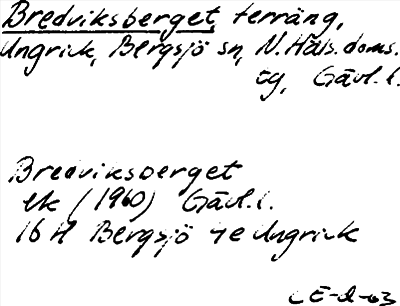 Bredviksberget, terräng,
Ungrick, Bergsjö sn, N. Häls. doms.
tg, Gävl. l.
Bredviksberget
ek (1960) Gävl. l.
16 H Bergsjö 4e Ungrick
CE-d-63